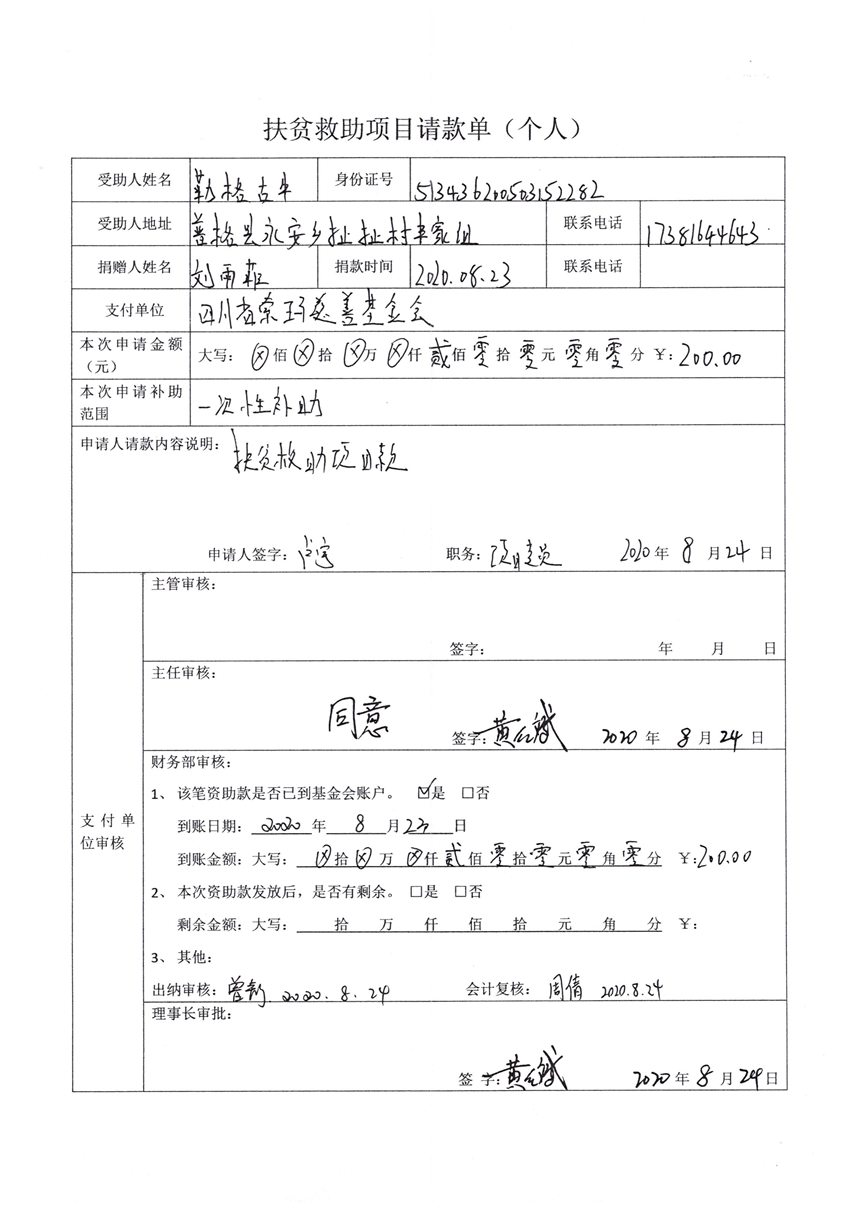 扶贫救助项目请款单（个人）
受助人姓名 勒格古牛 身份证号 513436200503152282
受助人地址 普格县永安乡扯扯村丰家组 联系电话 17381644643
捐赠人姓名 刘雨菲 捐款时间 2020.08.23 联系电话
支付单位 四川省索玛慈善基金会
本次申请金额（元） 大写：ⓧ佰ⓧ拾ⓧ万ⓧ仟贰佰零拾零元零角零分 ￥：200.00
本次申请补助范围 一次性补助
申请人请款内容说明：扶贫救助项目款
申请人签字： 职务：项目专员 2020年8月24日
支付单位审核
主管审核：
签字： 年 月 日
主任审核：
同意
签字：黄红斌 2020年8月24日
财务部审核：
1、该笔资助款是否已到基金会账户。 ☑是 □否
到账日期：2020年8月23日
到账金额：大写：ⓧ拾ⓧ万ⓧ仟贰佰零拾零元零角零分 ￥：200.00
2、本次资助款发放后，是否有剩余。 □是 □否
剩余金额：大写： 拾 万 仟 佰 拾 元 角 分 ￥：
3、其他：
出纳审核： 2020.8.24 会计复核：周倩 2020.8.24
理事长审批：
签字：黄红斌 2020年8月24日